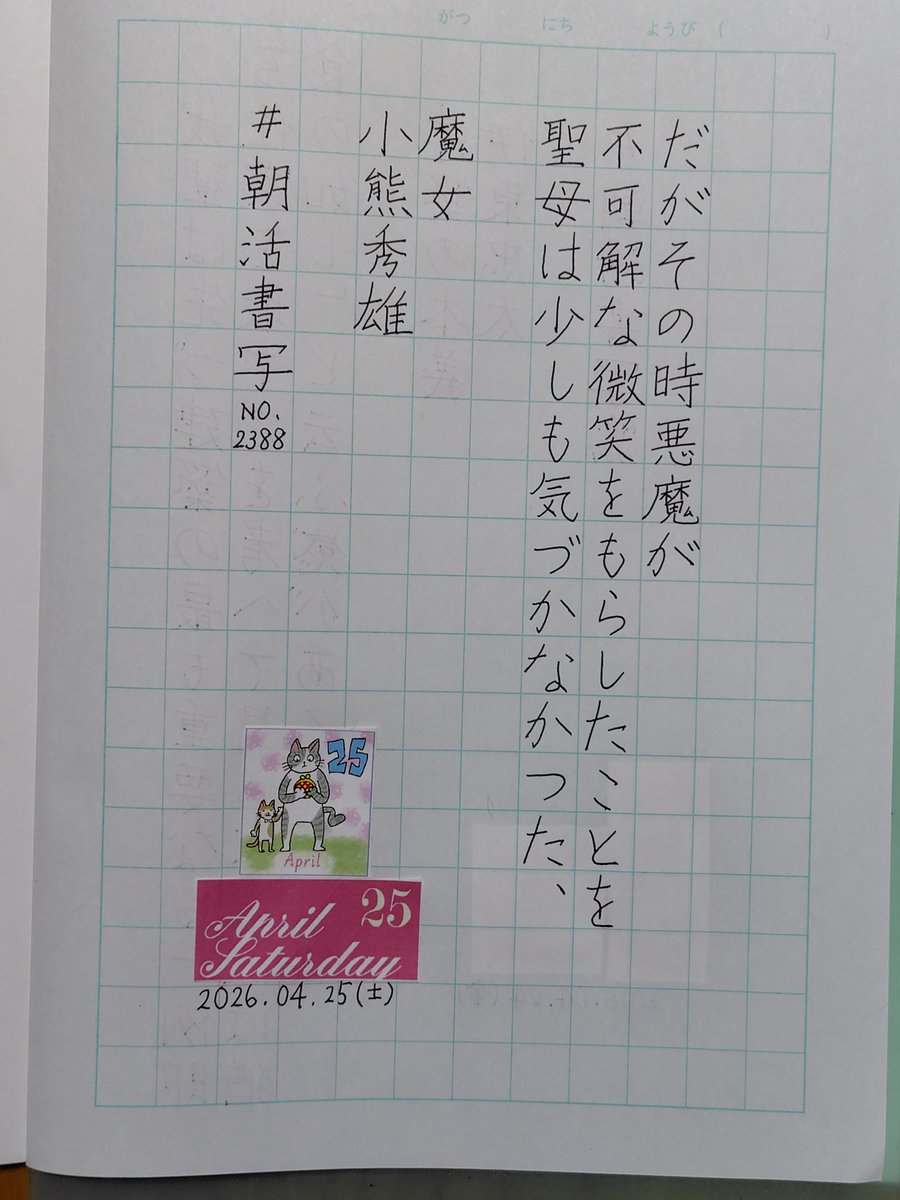 がつ にち ようび ( )
だがその時悪魔が
不可解な微笑をもらしたことを
聖母は少しも気づかなかつた、
魔女
小熊秀雄
#朝活書写
NO.
2388
25
April
April 25
Saturday
2026.04.25(土)